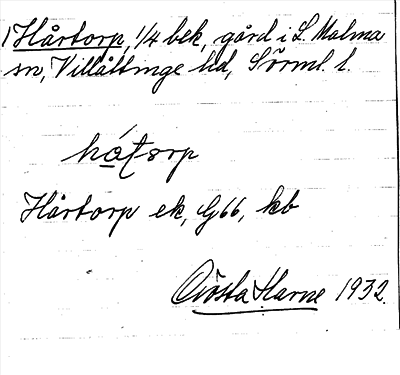 1 Hårtorp, 1/4 bek, gård i L. Malma
sn, Villåttinge hd, Sörml. l.
hǻʈorp
Hårtorp ek, G66, kb
Gösta Harne 1932.